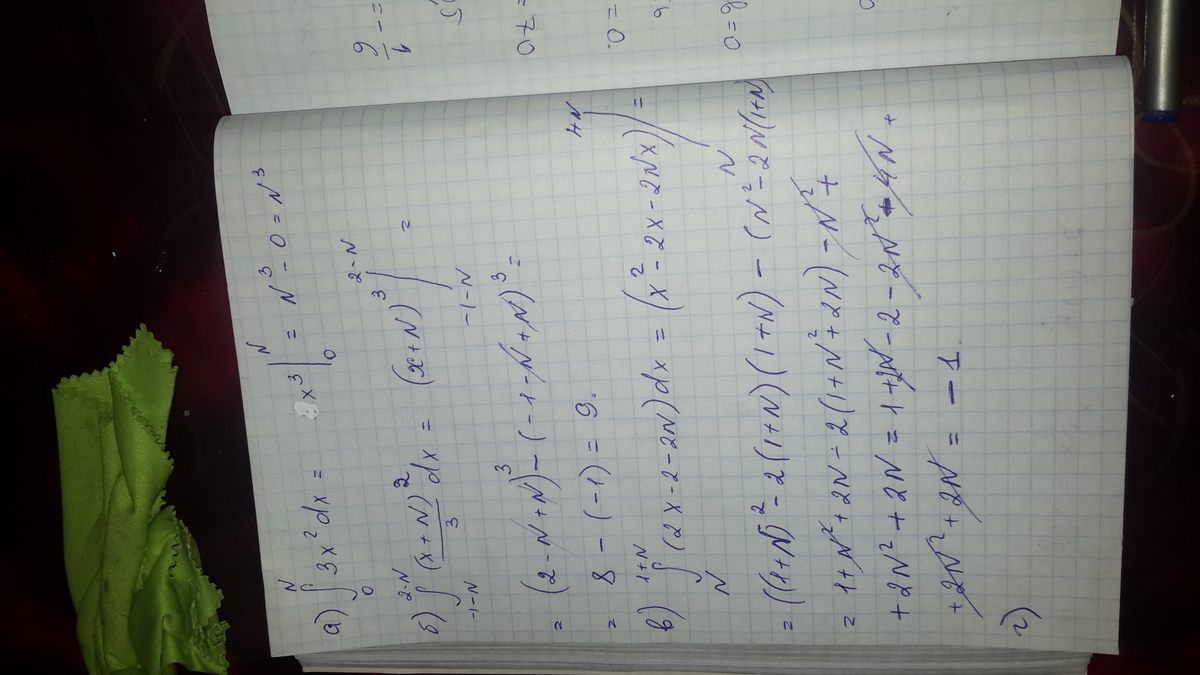 а) ∫₀ᴺ 3x² dx = x³ |₀ᴺ = N³ - 0 = N³
б) ∫₋₁₋ɴ²⁻ᴺ (x+N)²/3 dx = (x+N)³ |₋₁₋ɴ²⁻ᴺ =
= (2-N+N)³ - (-1-N+N)³ =
= 8 - (-1) = 9.
в) ∫ɴ¹⁺ᴺ (2x-2-2N) dx = (x²-2x-2Nx) |ɴ¹⁺ᴺ =
= ((1+N)² - 2(1+N)(1+N) - (N² - 2N(1+N)
= 1+N²+2N - 2(1+N²+2N) - N² +
+ 2N² + 2N = 1 + 2N - 2 - 2N² - 4N +
+ 2N² + 2N = - 1
г)